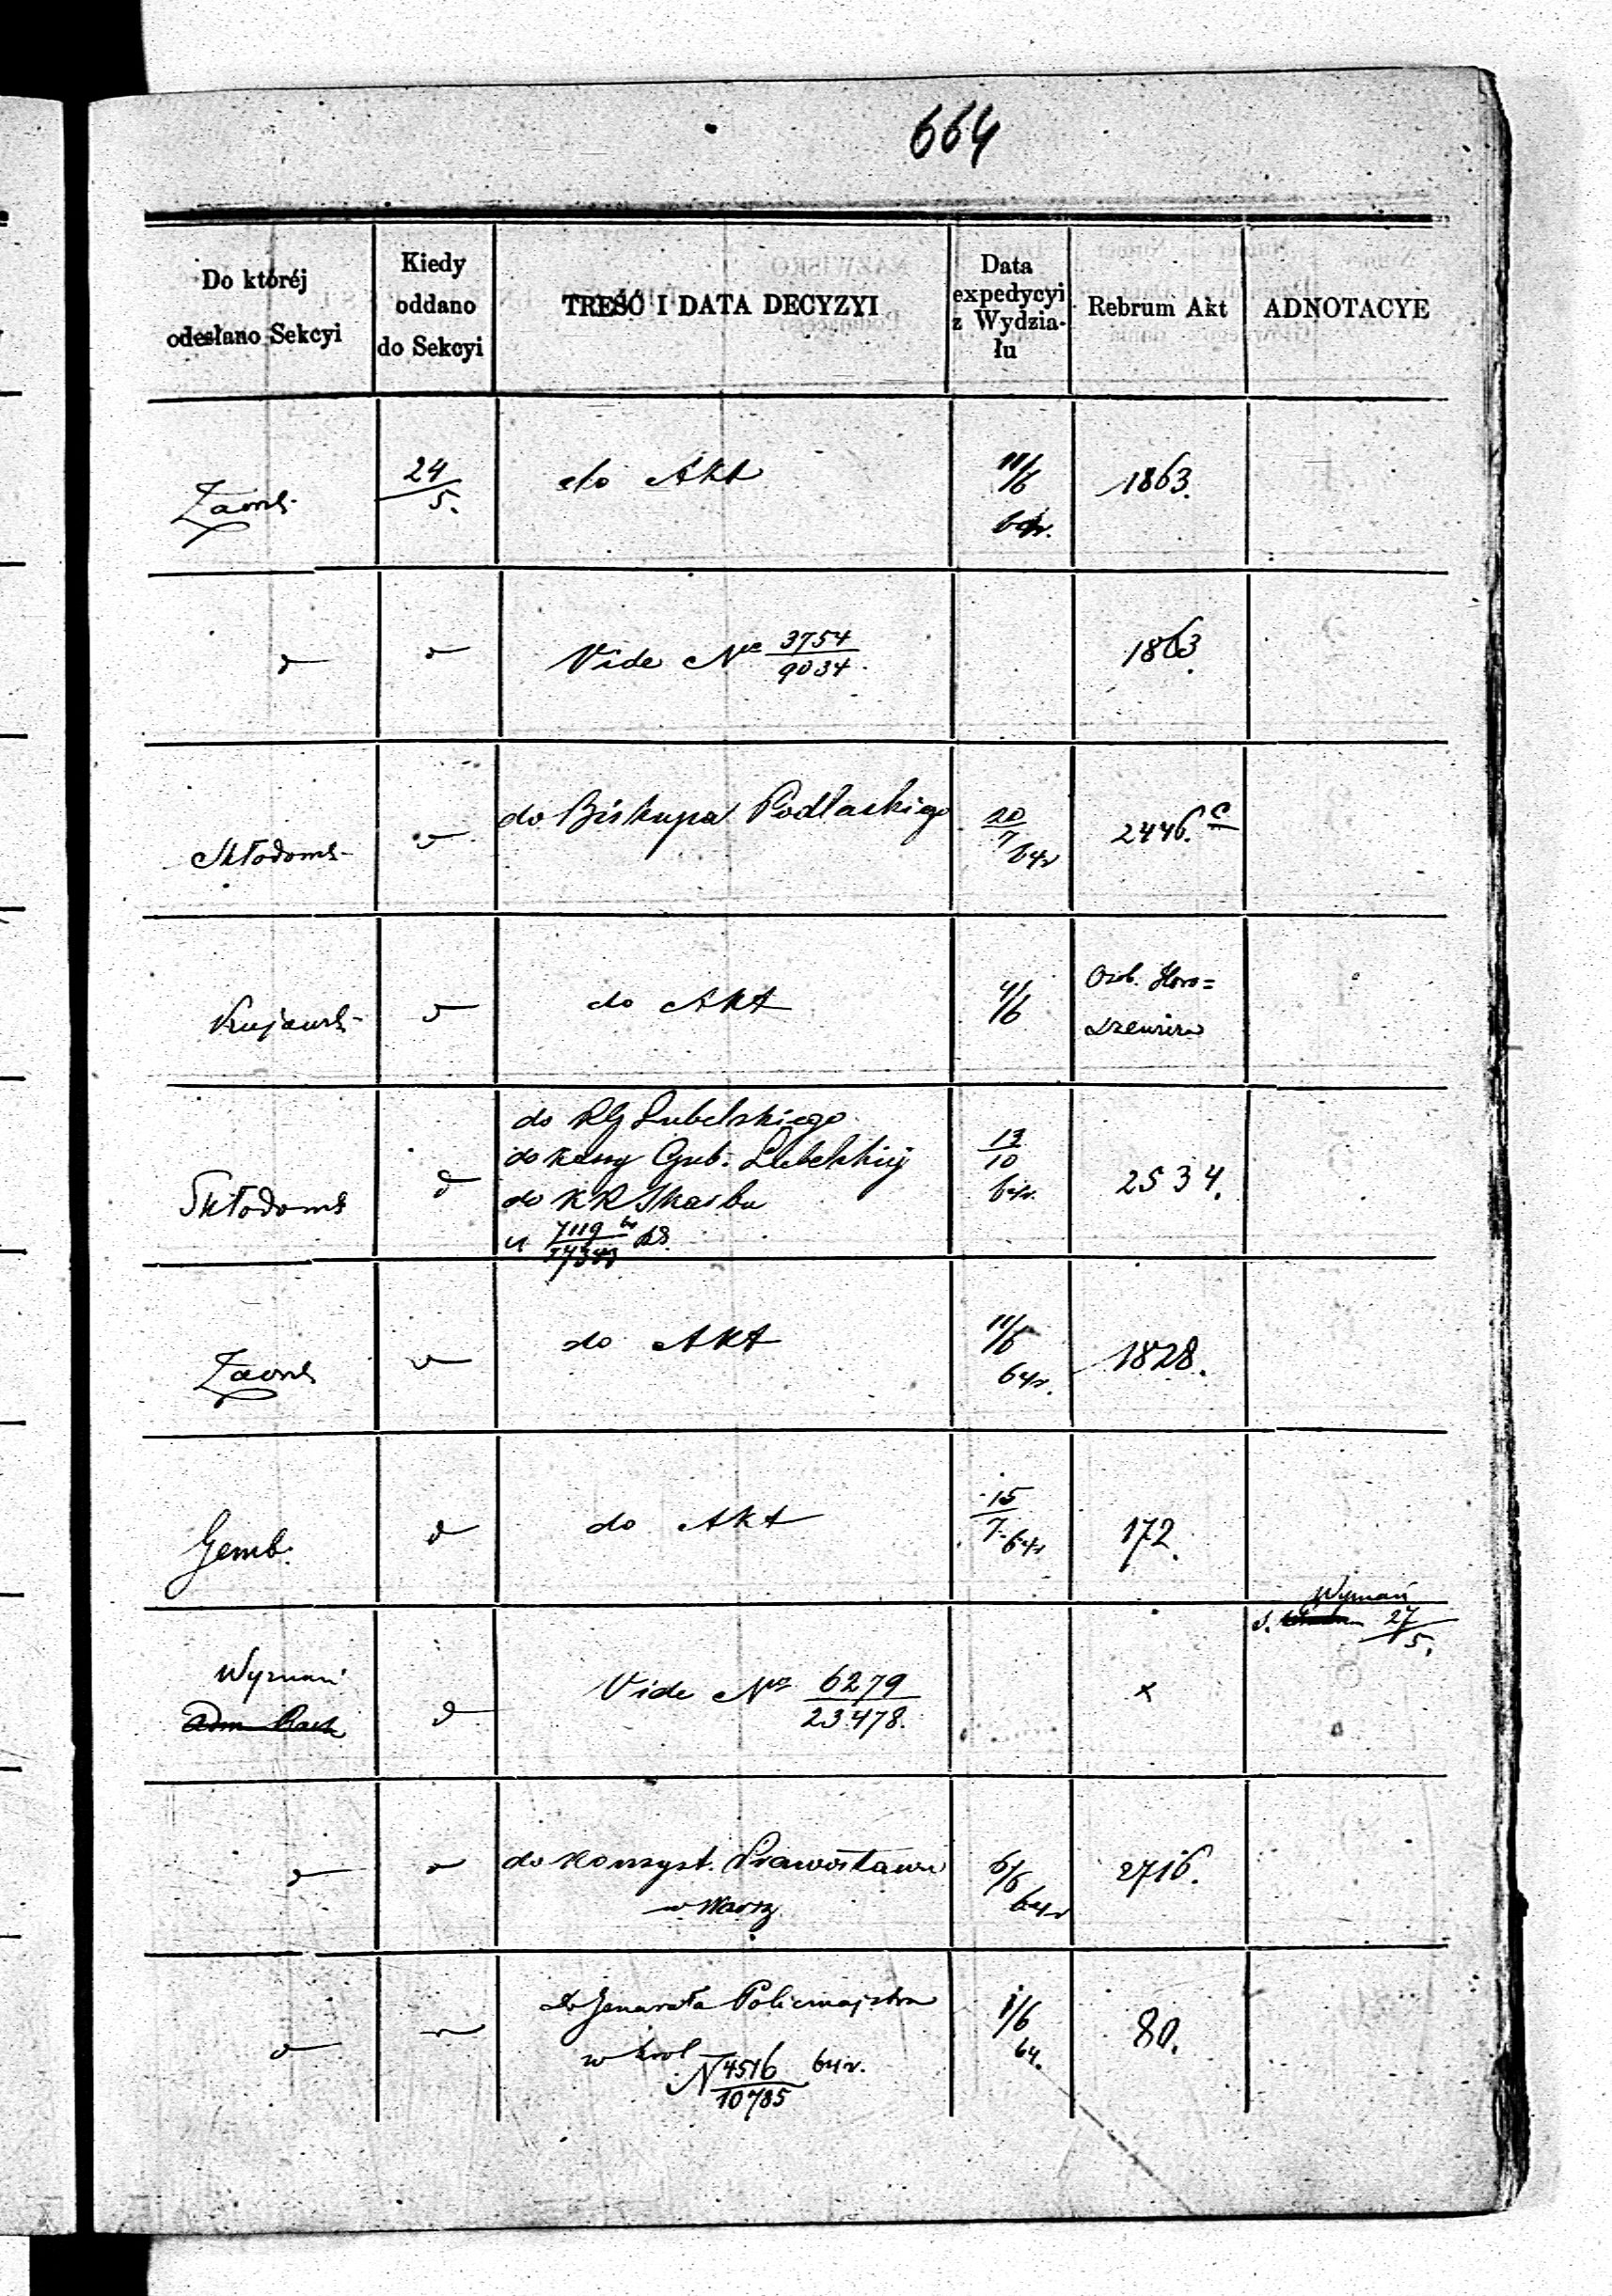 664
Do któréj
odesłano Sekcyi
Kiedy
oddano
do Sekcyi
TREŚĆ I DATA DECYZYI
Data
expedycyi
z Wydzia-
łu
Rebrum Akt
ADNOTACYE
24/5.
do Akt
11/6
64r.
1863.
Vide Nr 3754/9034.
1863
Skłodows-
do Biskupa Podlaskiego
20/7 64r
2446. C
Kujaws-
do Akt
4/6
Osob. Horo=
Skłodows
do RG Lubelskiego
do Kassy Gub. Lubelskiej
do KR Skarbu
13/10
64r.
2534.
do Akt
11/6
64r.
1828.
Gemb.
do Akt
15/7 64r
172.
Wyznań
27/5.
Wyznań
Vide Nr 6279/23478.
x
do Konsyst. Prawosławn
w Warsz
6/6
64r
2716.
do Generała Policmajstra
w Król
N 4516/10785 64r.
1/6
64.
80.